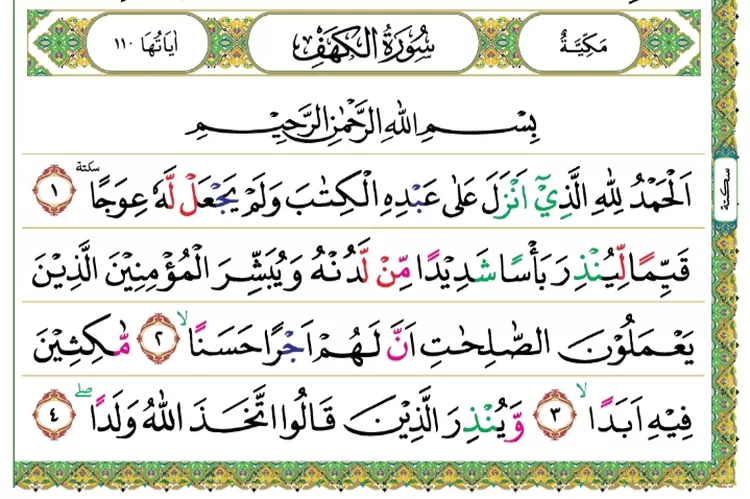 مَكِّيَّةٌ سُوْرَةُ الْكَهْفِ اٰيَاتُهَا ١١٠
بِسْمِ اللهِ الرَّحْمٰنِ الرَّحِيْمِ
اَلْحَمْدُ لِلهِ الَّذِيْٓ اَنْزَلَ عَلٰى عَبْدِهِ الْكِتٰبَ وَلَمْ يَجْعَلْ لَّهٗ عِوَجًا سكتة ١
قَيِّمًا لِّيُنْذِرَ بَأْسًا شَدِيْدًا مِّنْ لَّدُنْهُ وَيُبَشِّرَ الْمُؤْمِنِيْنَ الَّذِيْنَ
يَعْمَلُوْنَ الصّٰلِحٰتِ اَنَّ لَهُمْ اَجْرًا حَسَنًا ۙ ٢ مّٰكِثِيْنَ
فِيْهِ اَبَدًا ۙ ٣ وَّيُنْذِرَ الَّذِيْنَ قَالُوا اتَّخَذَ اللهُ وَلَدًا ۖ ٤
سكتة